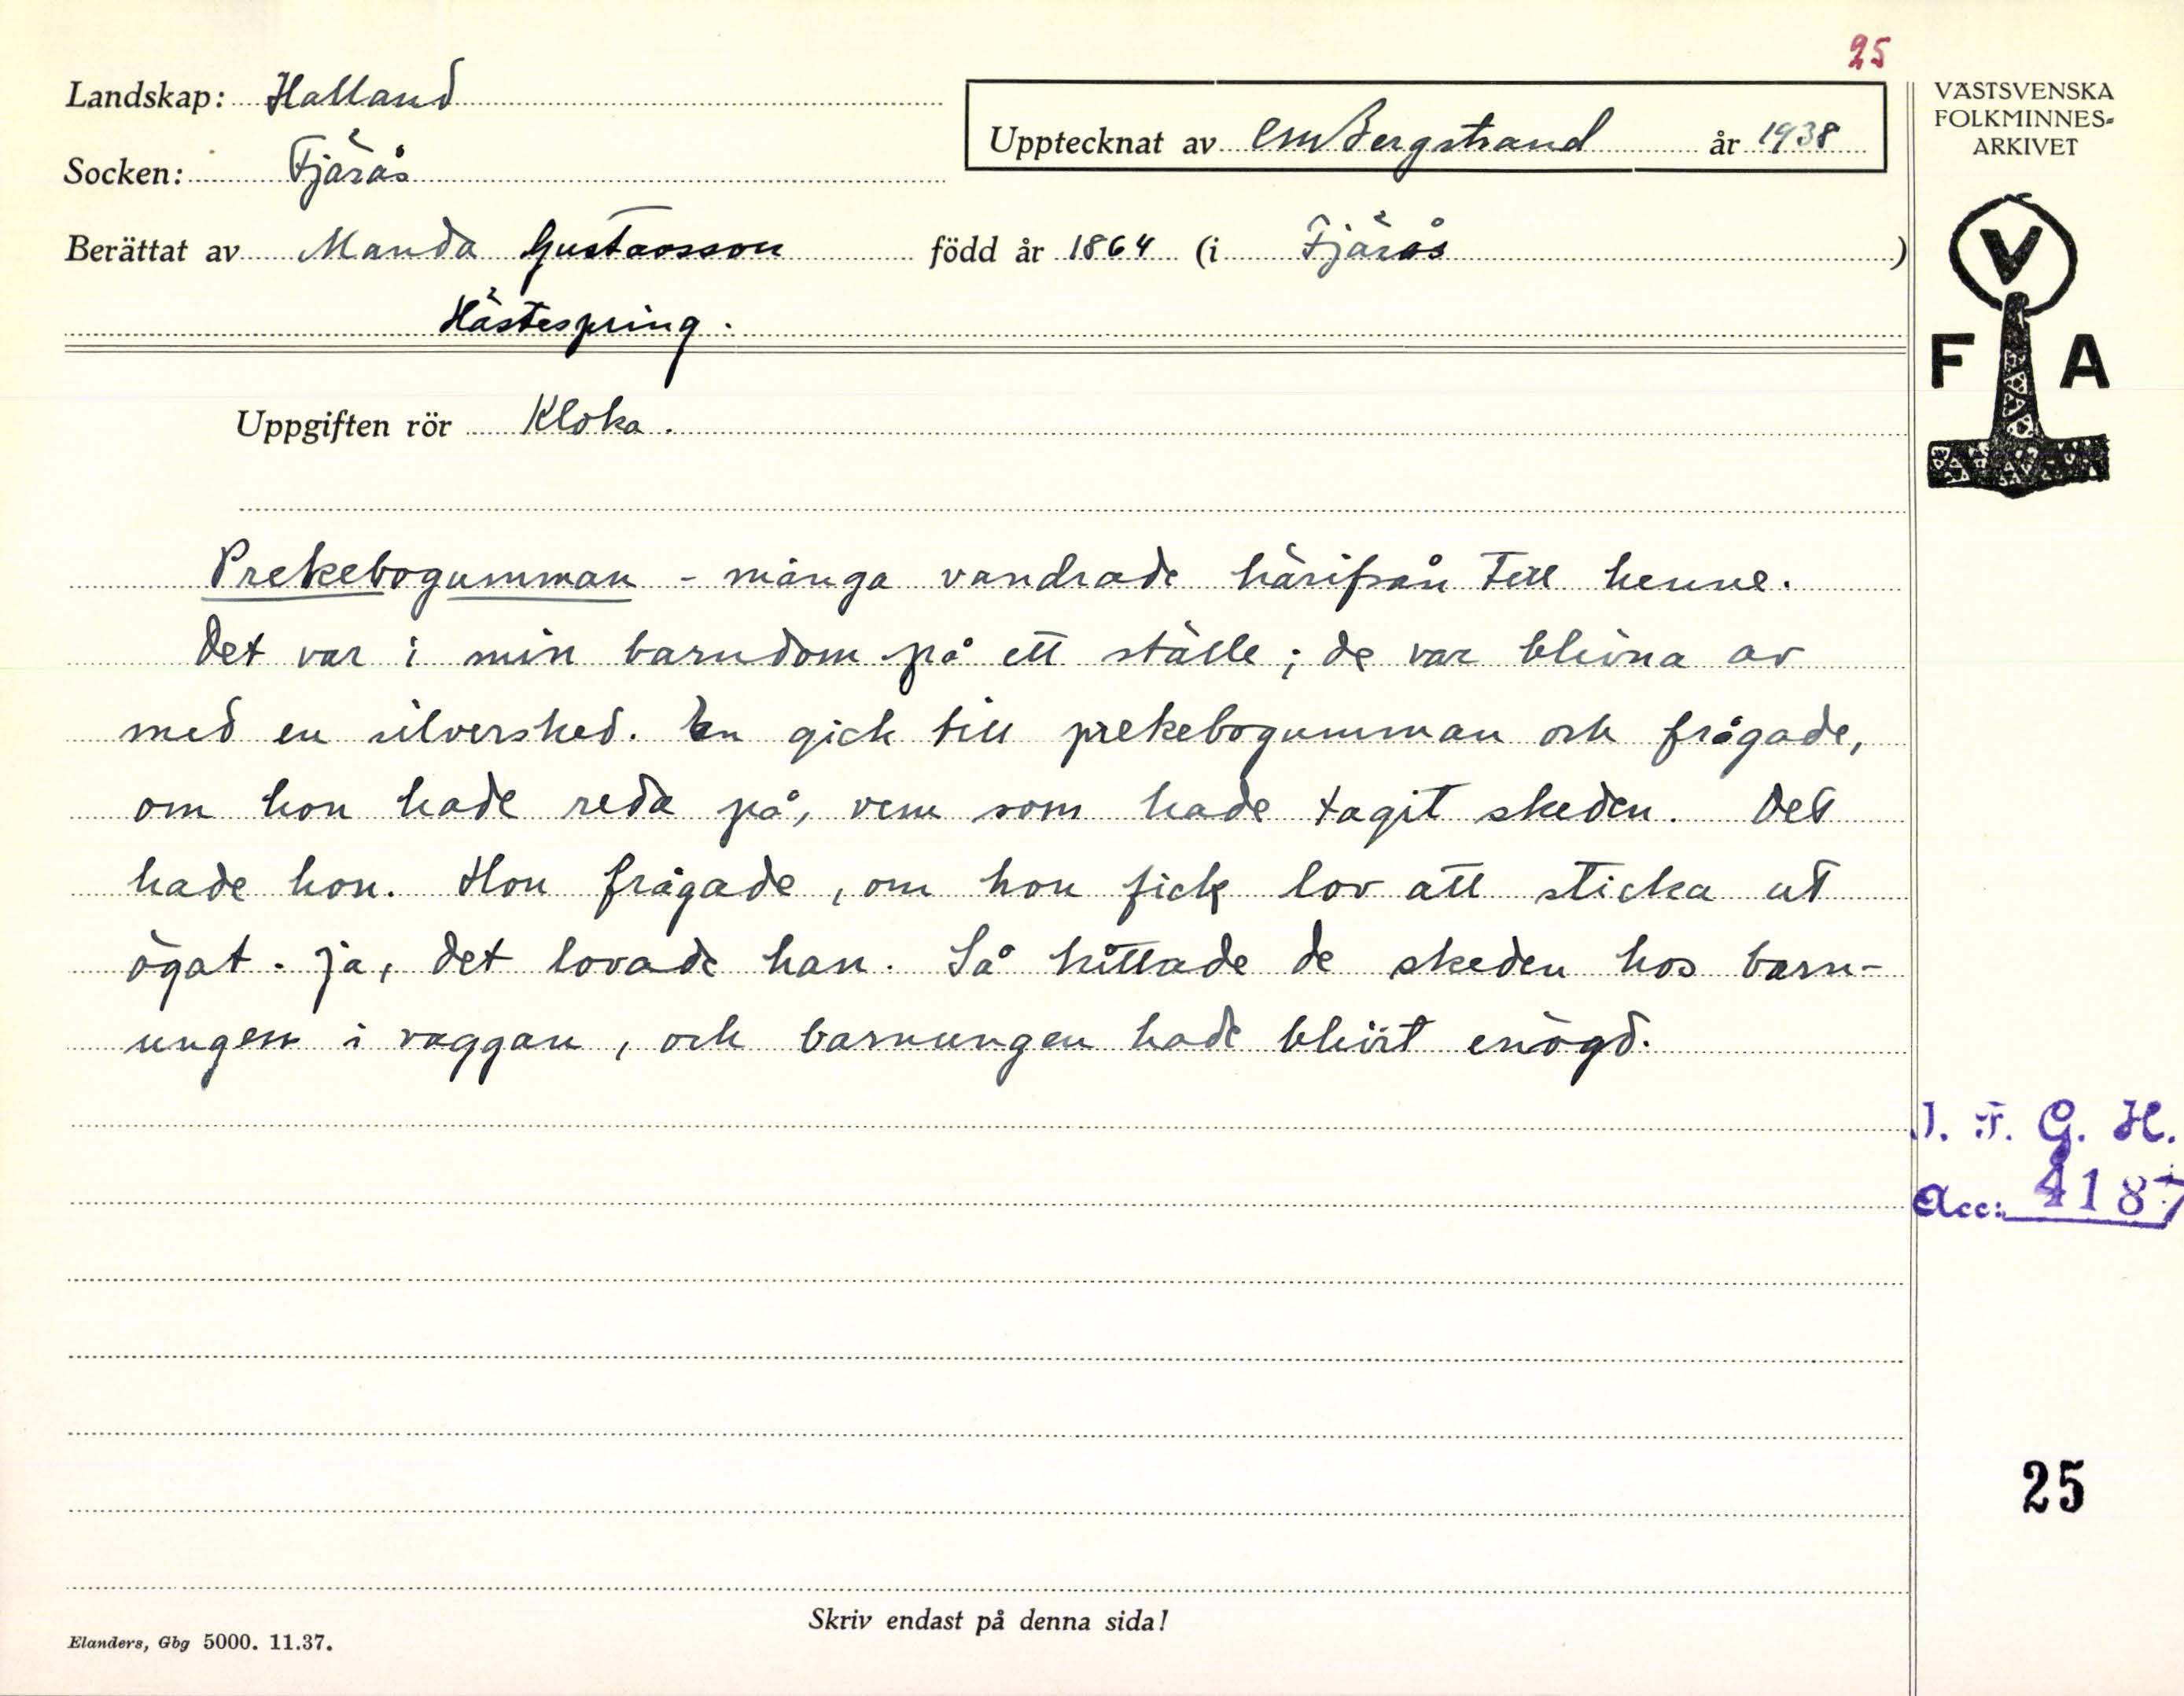 25
Landskap: Halland
Upptecknat av CMBergstrand år 1938
Socken: Fjärås
Berättat av Manda Gustavsson född år 1864 (i Fjärås)
Hästespring.
Uppgiften rör Kloka.
Prekebogumman - många vandrade härifrån till henne.
Det var i min barndom på ett ställe; de var blivna av
med en silversked. En gick till prekebogumman och frågade,
om hon hade reda på, vem som hade tagit skeden. Det
hade hon. Hon frågade, om hon fick lov att sticka ut
ögat. Ja, det lovade han. Så hittade de skeden hos barn-
ungen i vaggan, och barnungen hade blivit enögd.
Skriv endast på denna sida!
Elanders, Gbg 5000. 11.37.
VÄSTSVENSKA
FOLKMINNES-
ARKIVET
V
F A
I. F. G. H.
Acc: 4187
25